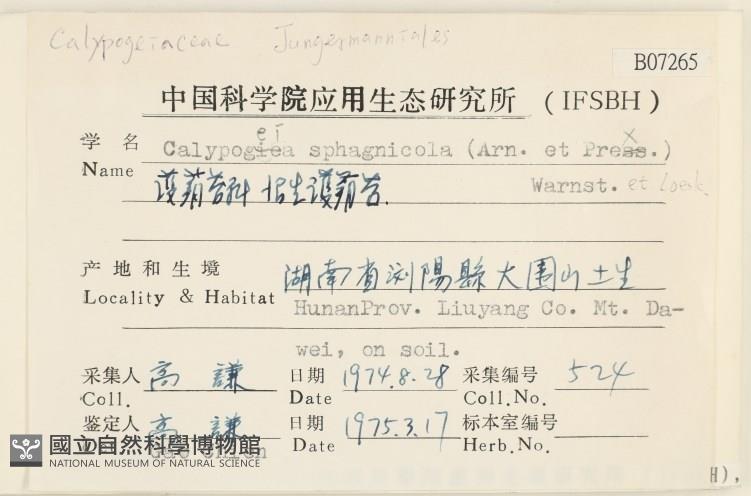 Calypogeiaceae Jungermanniales
B07265
中国科学院应用生态研究所 (IFSBH)
ei x
学名 Calypogiea sphagnicola (Arn. et Press.)
Name 護蒴苔科 沼生護蒴苔. Warnst. et Loesk.
产地和生境 湖南省浏陽縣大围山土生
Locality & Habitat HunanProv. Liuyang Co. Mt. Da-
wei, on soil.
采集人 高謙 日期 1974.8.28 采集编号 524
Coll. Date Coll.No.
鉴定人 高謙 日期 1975.3.17 标本室编号
Date Herb.No.
國立自然科學博物館
NATIONAL MUSEUM OF NATURAL SCIENCE
H),